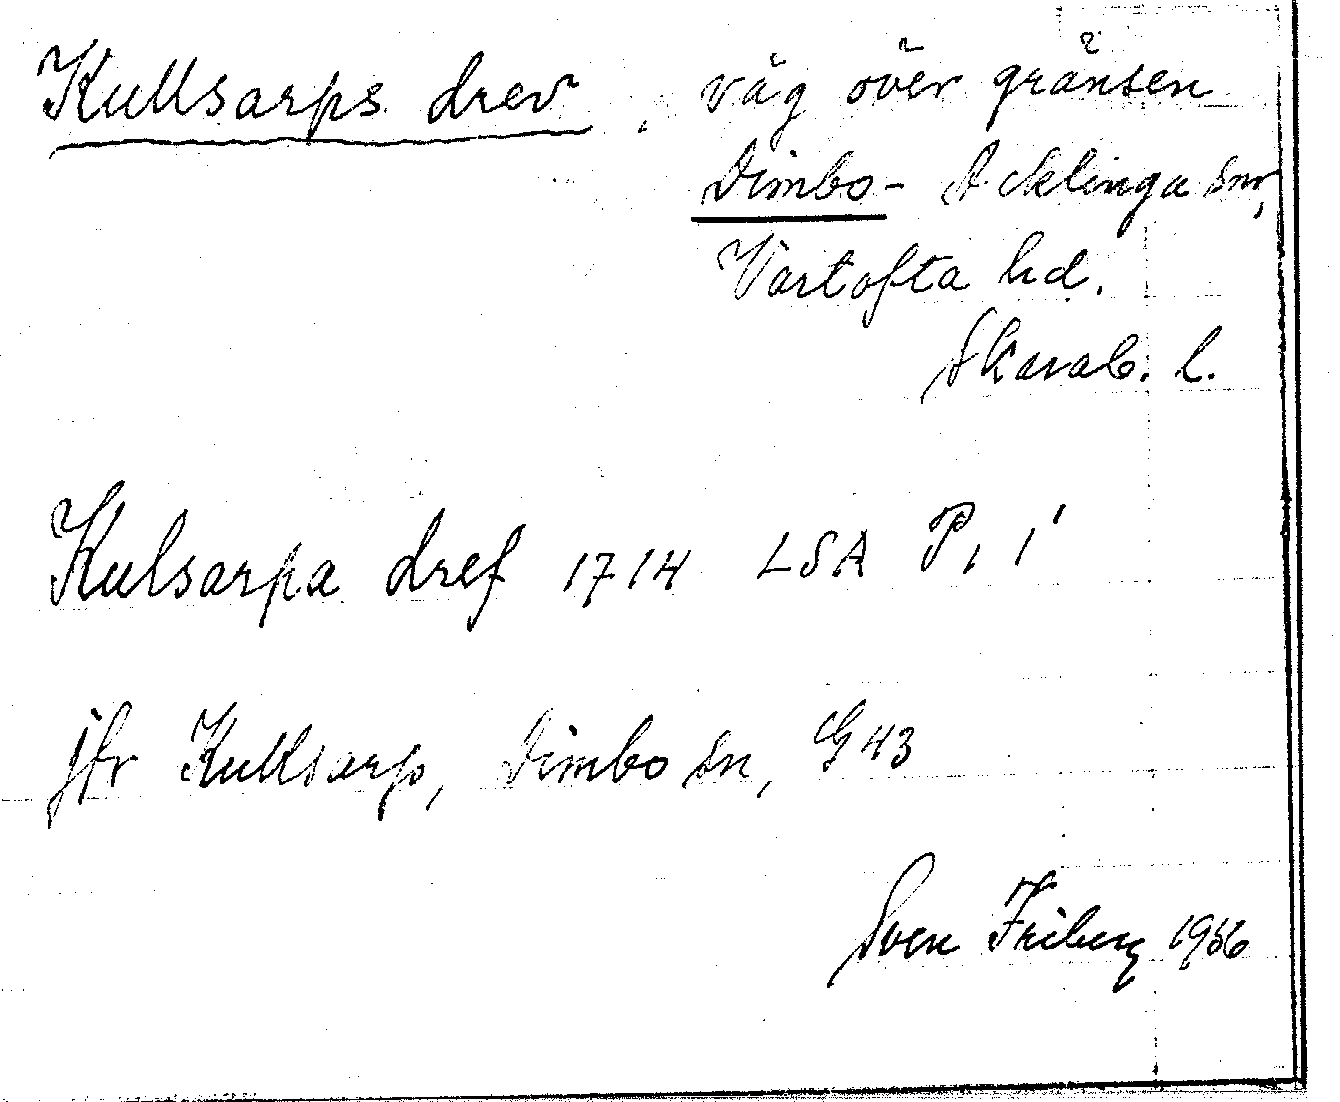 Kullsarps drev, väg över gränsen
Dimbo- Acklinga snr,
Vartofta hd.
Skarab. l.
Kulsarpa dref 1714 LSA P, 1'
jfr Kullsarp, Dimbo sn, G 43
Sven Friberg 1956